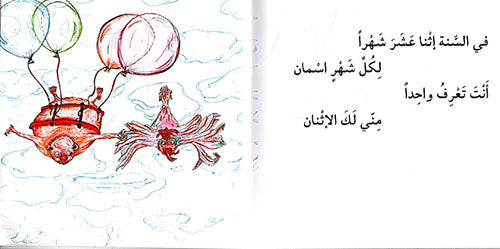 في السَّنة إثْنا عَشَرَ شَهْراً
لِكُلِّ شَهْرٍ اسْمان
أَنْتَ تَعْرِفُ واحِداً
مِنّي لَكَ الاثْنان